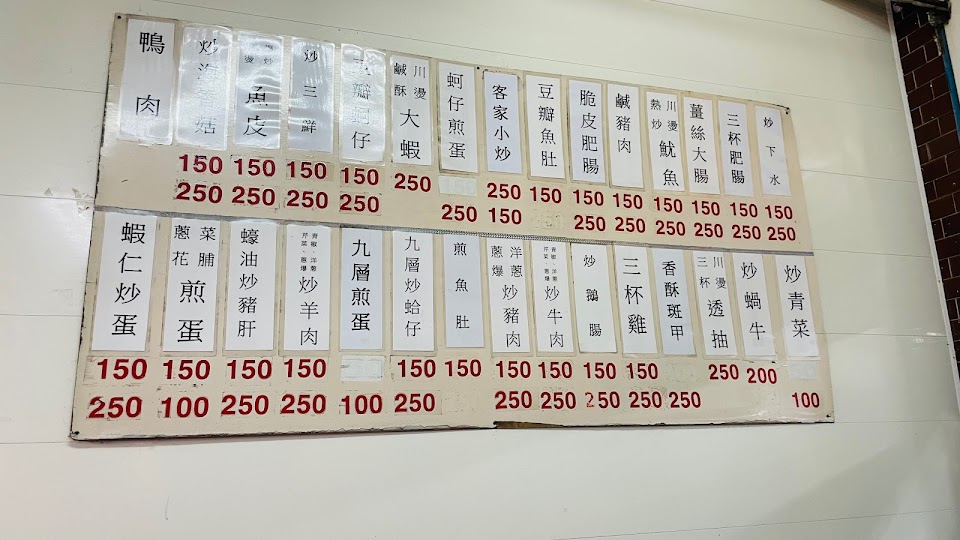 鴨肉
魚皮
炒三鮮
瓣蚵仔
鹹酥
川燙
大蝦
蚵仔煎蛋
客家小炒
豆瓣魚肚
脆皮肥腸
鹹豬肉
熱炒
川燙
魷魚
薑絲大腸
三杯肥腸
炒下水
150 150 150 150 250 250 150 150 150 150 150 150 150
250 250 250 250 250 150 250 250 250 250 250 250
蝦仁炒蛋
蔥花
菜脯
煎蛋
蠔油炒豬肝
芹菜、蔥爆
青椒、洋蔥
炒羊肉
九層煎蛋
九層炒蛤仔
煎魚肚
蔥爆
洋蔥
炒豬肉
芹菜、蔥爆
青椒、洋蔥
炒牛肉
炒鵝腸
三杯雞
香酥斑甲
三杯
川燙
透抽
炒蝸牛
炒青菜
150 150 150 150 150 150 150 150 150 150 250 200
250 100 250 250 100 250 250 250 250 250 250 100